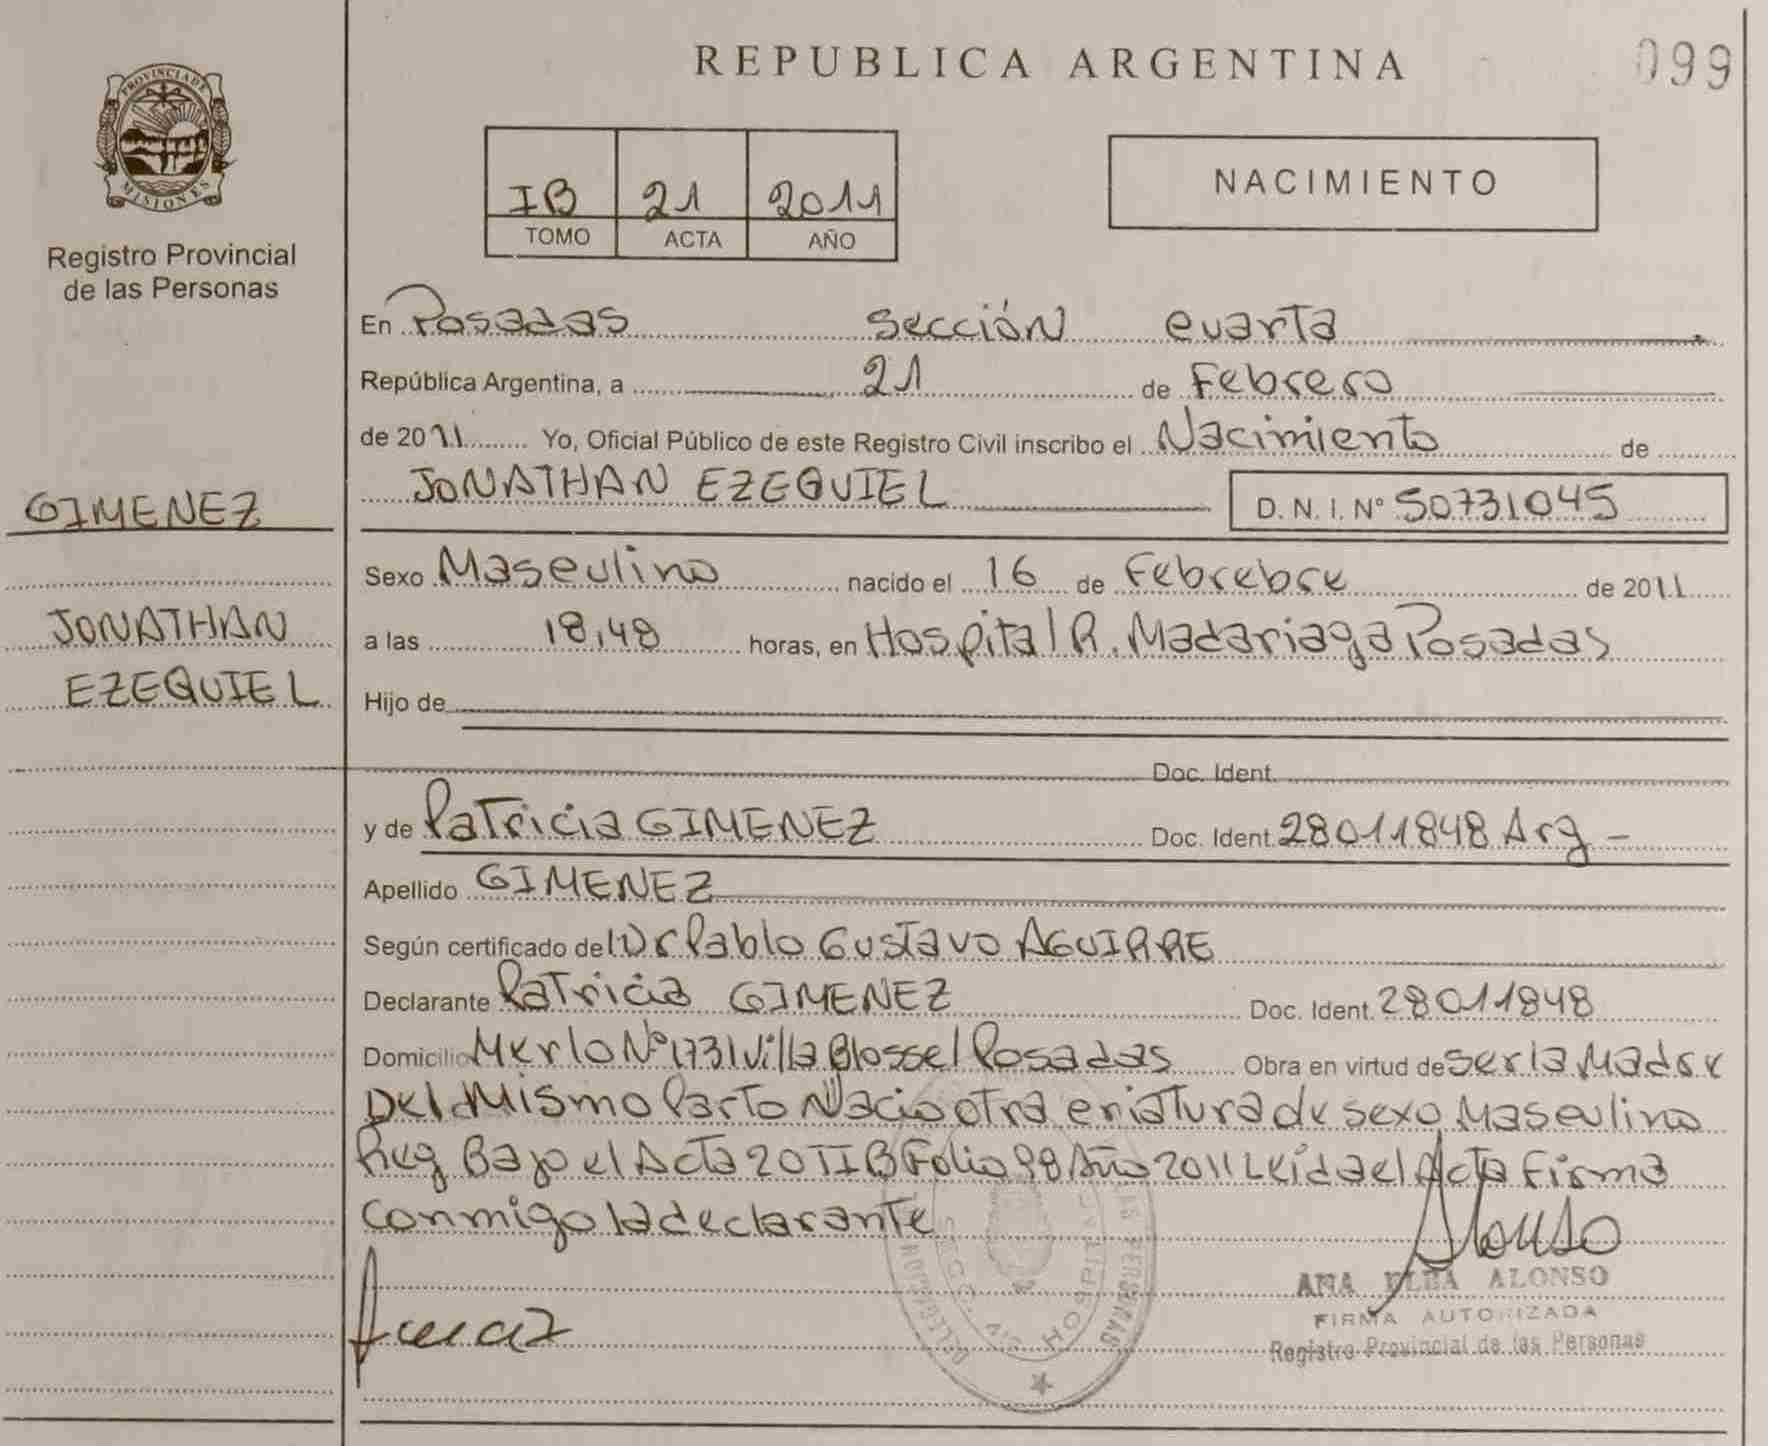 REPUBLICA ARGENTINA
099
PROVINCIA DE
MISIONES
Registro Provincial
de las Personas
IB 21 2011
TOMO ACTA AÑO
NACIMIENTO
En Posadas Sección cuarta
República Argentina, a 21 de Febrero
de 2011 Yo, Oficial Público de este Registro Civil inscribo el Nacimiento de
JONATHAN EZEQUIEL D. N. I. Nº 50731045
GIMENEZ
JONATHAN
EZEQUIEL
Sexo Masculino nacido el 16 de Febrebre de 2011
a las 18,48 horas, en Hospital R. Madariaga Posadas
Hijo de
Doc. Ident.
y de Patricia GIMENEZ Doc. Ident. 28011848 Arg -
Apellido GIMENEZ
Según certificado del Dr Pablo Gustavo AGUIRRE
Declarante Patricia GIMENEZ Doc. Ident. 28011848
Domicilio Merlo Nº 1731 Villa Blossel Posadas Obra en virtud de ser la Madre
Del Mismo Parto Nacio otra criatura de sexo Masculino
Reg Bajo el Acta 20 TIB Folio 98 Año 2011 Leida el Acta Firma
conmigo la declarante
Alonso
ANA ELBA ALONSO
FIRMA AUTORIZADA
Registro Provincial de las Personas